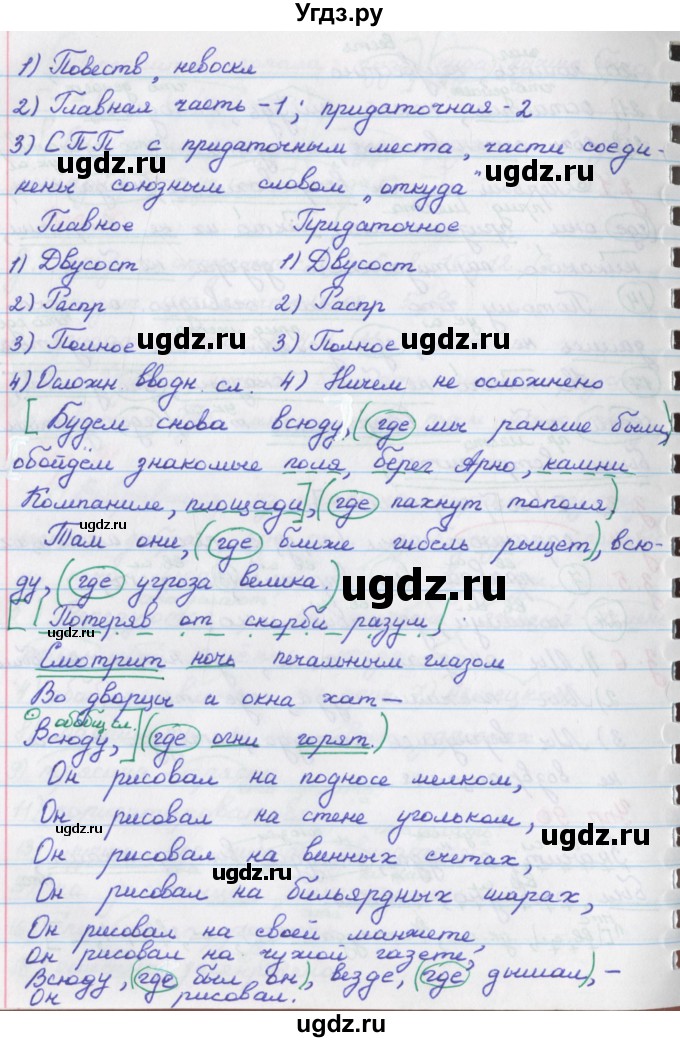 Угдз.ру
1) Повеств, невоскл
2) Главная часть -1; придаточная -2
3) СПП с придаточным места, части соеди-
нены союзным словом „откуда"
Главное Придаточное
1) Двусост 1) Двусост
2) Распр 2) Распр
3) Полное 3) Полное
4) Осложн вводн сл. 4) Ничем не осложнено
[Будем снова всюду, (где мы раньше были),
обойдём знакомые поля, берег Арно, камни
Компаниле, площади], (где пахнут тополя)
Там они, (где ближе гибель рыщет), всю-
ду, (где угроза велика.)
[Потеряв от скорби разум,
Смотрит ночь печальным глазом
Во дворцы и окна хат—
обобщ сл.
Всюду,] (где огни горят.)
Он рисовал на подносе мелком,
Он рисовал на стене угольком,
Он рисовал на винных счетах,
Он рисовал на бильярдных шарах,
Он рисовал на своей манжете,
Он рисовал на чужой газете,
Всюду, (где был он), везде, (где дышал), —
Он рисовал.
ugdz.ru
ugdz.ru
ugdz.ru
ugdz.ru
ugdz.ru
ugdz.ru
ugdz.ru
ugdz.ru
ugdz.ru
ugdz.ru
ugdz.ru
ugdz.ru
ugdz.ru